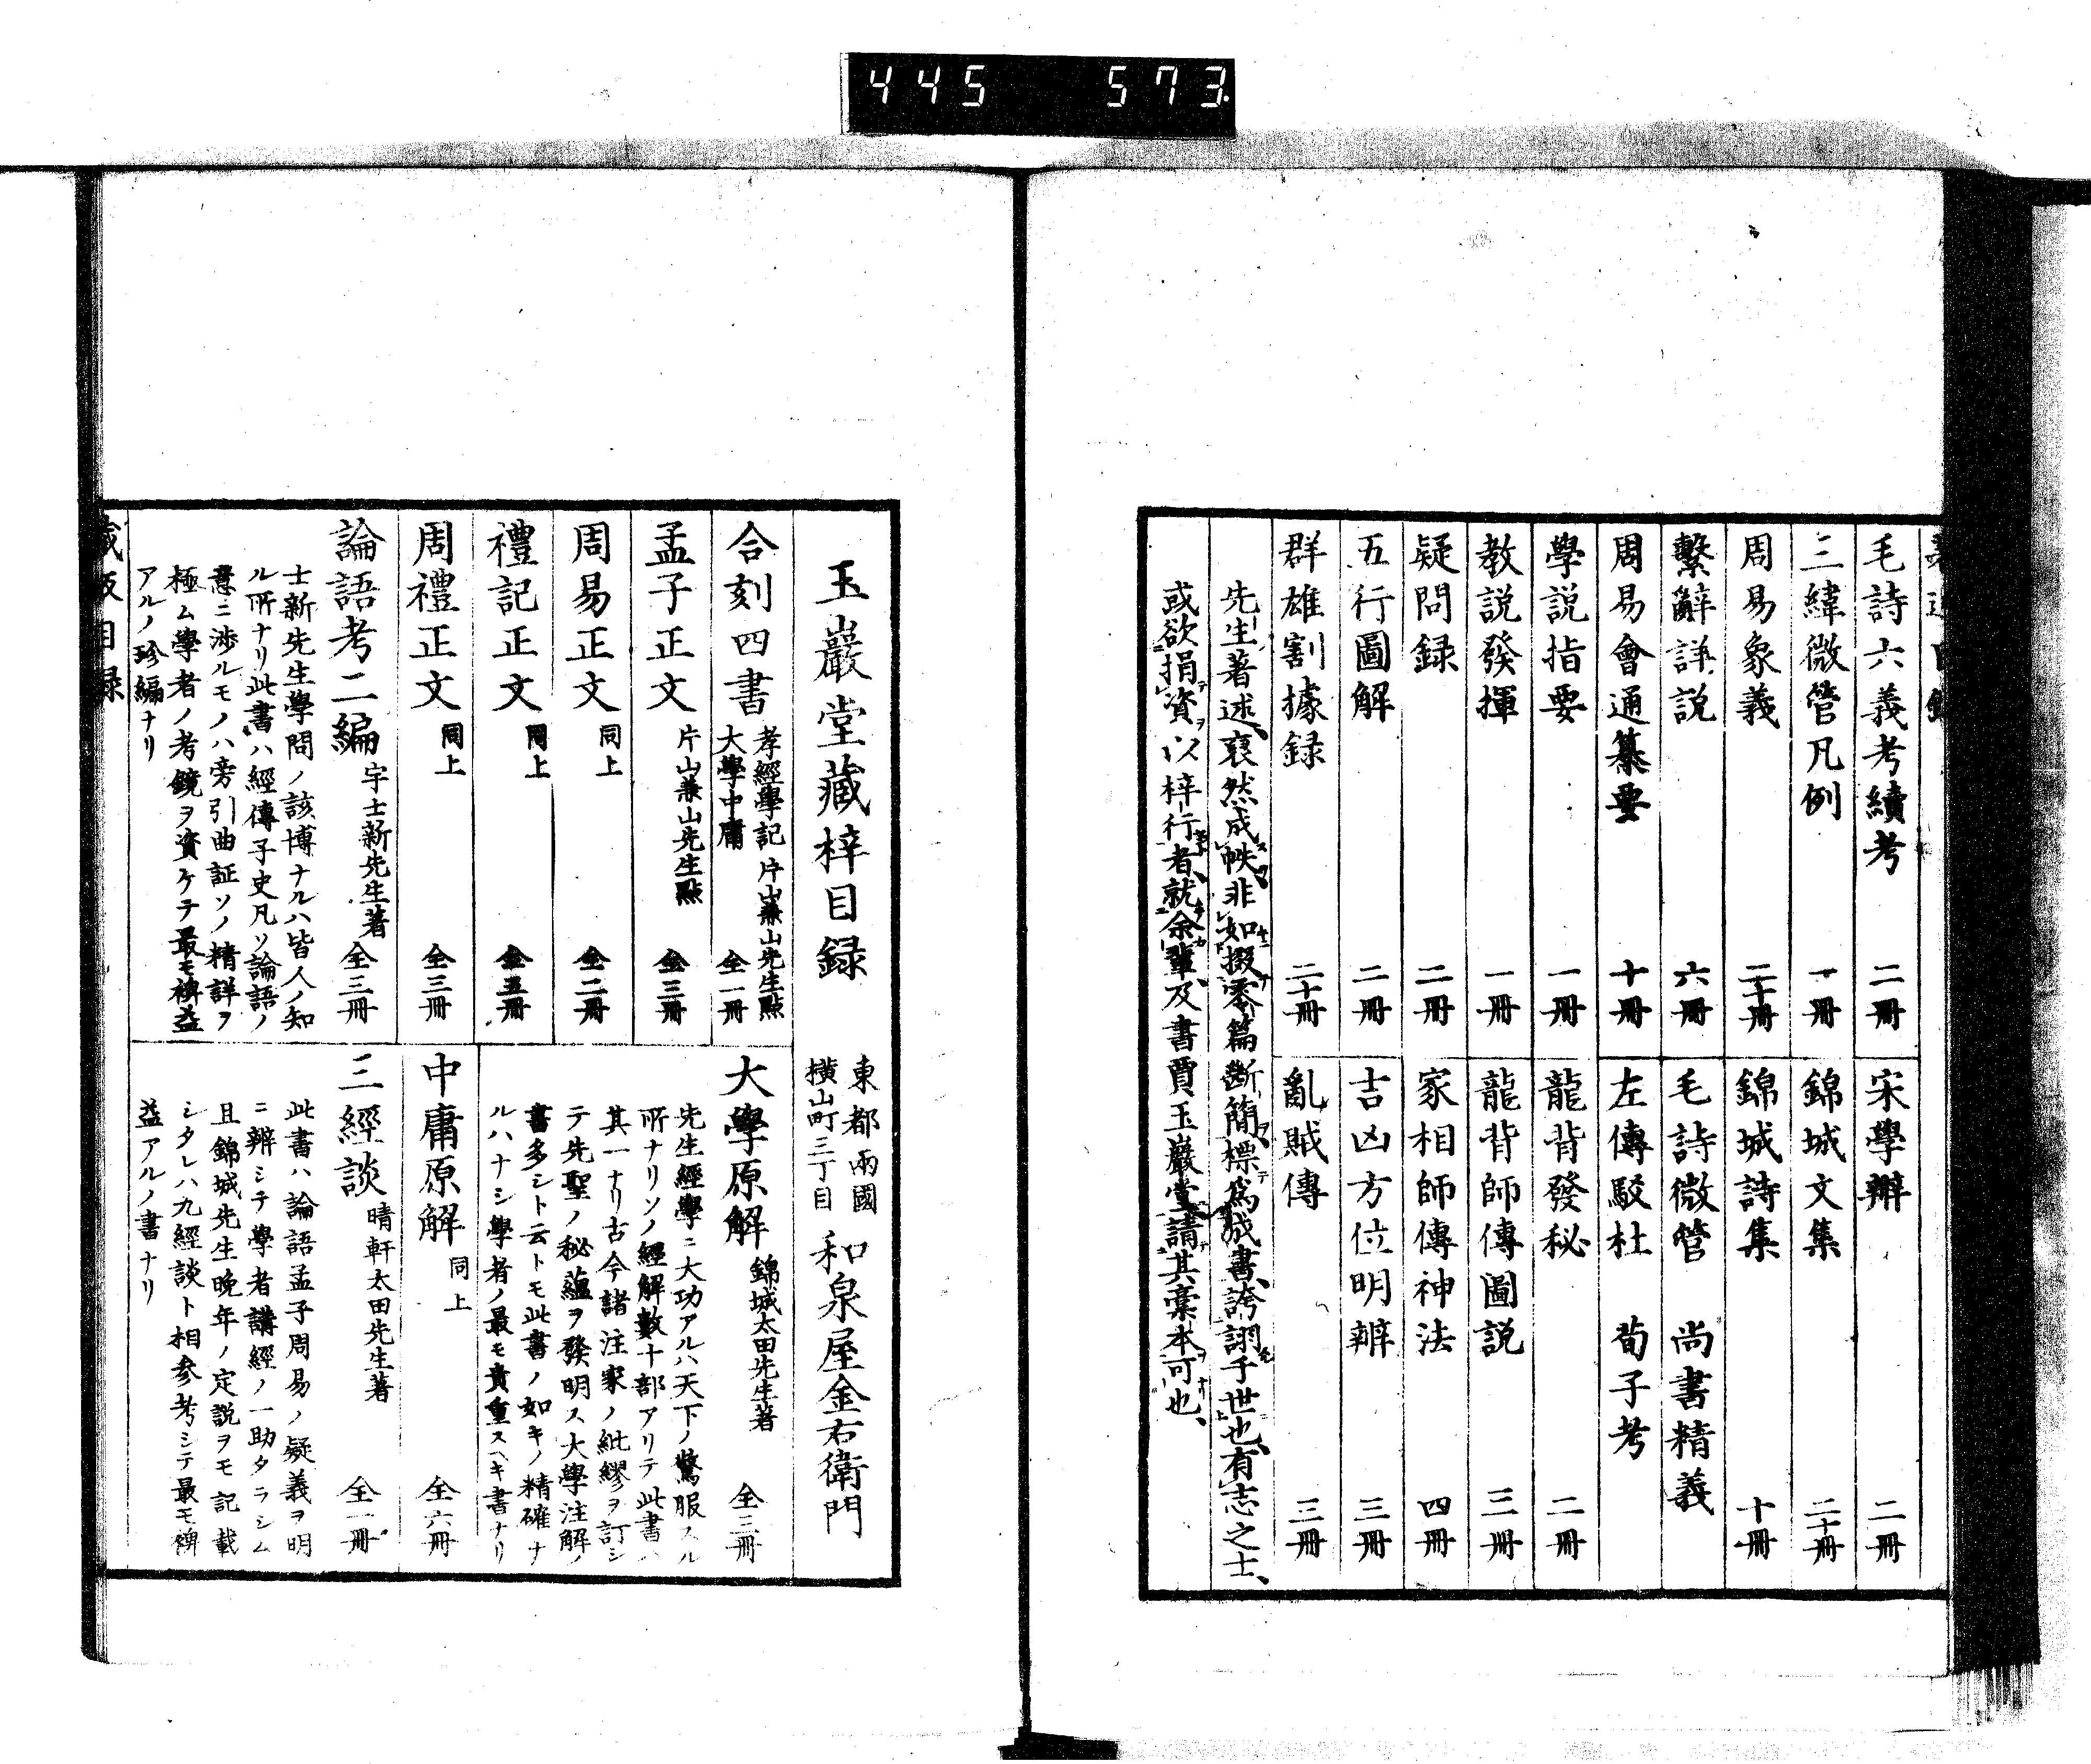 445 573
毛詩六義考續考 二冊
三緯微管凡例 一冊
周易象義 二十冊
繫辭詳説 六冊
周易會通纂要 十冊
學説指要 一冊
教説發揮 一冊
疑問録 二冊
五行圖解 二冊
群雄割據録 二十冊
宋學辨 二冊
錦城文集 二十冊
錦城詩集 十冊
毛詩微管 尚書精義
左傳駁杜 荀子考
龍背發秘 二冊
龍背師傳圖説 三冊
家相師傳神法 四冊
吉凶方位明辨 三冊
亂賊傳 三冊
先生著述、裒然成帙、非如掇零篇斷簡、標爲成書、誇詡乎世也、有志之士、
或欲捐資以梓行者、就余輩、及書賈玉巖堂、請其稾本可也、
玉巖堂藏梓目録
東都兩國
横山町三丁目
和泉屋金右衛門
合刻四書 孝經學記 大學中庸 片山兼山先生點 全一冊
孟子正文 片山兼山先生點 全三冊
周易正文 同上 全二冊
禮記正文 同上 全五冊
周禮正文 同上 全三冊
論語考二編 宇士新先生著 全三冊
士新先生學問ノ該博ナルハ皆人ノ知
ル所ナリ此書ハ經傳子史凡ソ論語ノ
意ニ渉ルモノハ旁引曲証ソノ精詳ヲ
極ム學者ノ考鏡ヲ資ケテ最モ裨益
アルノ珍編ナリ
大學原解 錦城太田先生著 全三冊
先生經學ニ大功アルハ天下ノ驚服スル
所ナリソノ經解數十部アリテ此書ハ
其一ナリ古今諸注家ノ紕繆ヲ訂シ
テ先聖ノ秘蘊ヲ發明ス大學注解ノ
書多シト云トモ此書ノ如キノ精確ナ
ルハナシ學者ノ最モ貴重スヘキ書ナリ
中庸原解 同上 全六冊
三經談 晴軒太田先生著 全一冊
此書ハ論語孟子周易ノ疑義ヲ明
ニ辨シテ學者講經ノ一助タラシム
且錦城先生晩年ノ定説ヲモ記載
シタレハ九經談ト相參考シテ最モ裨
益アルノ書ナリ